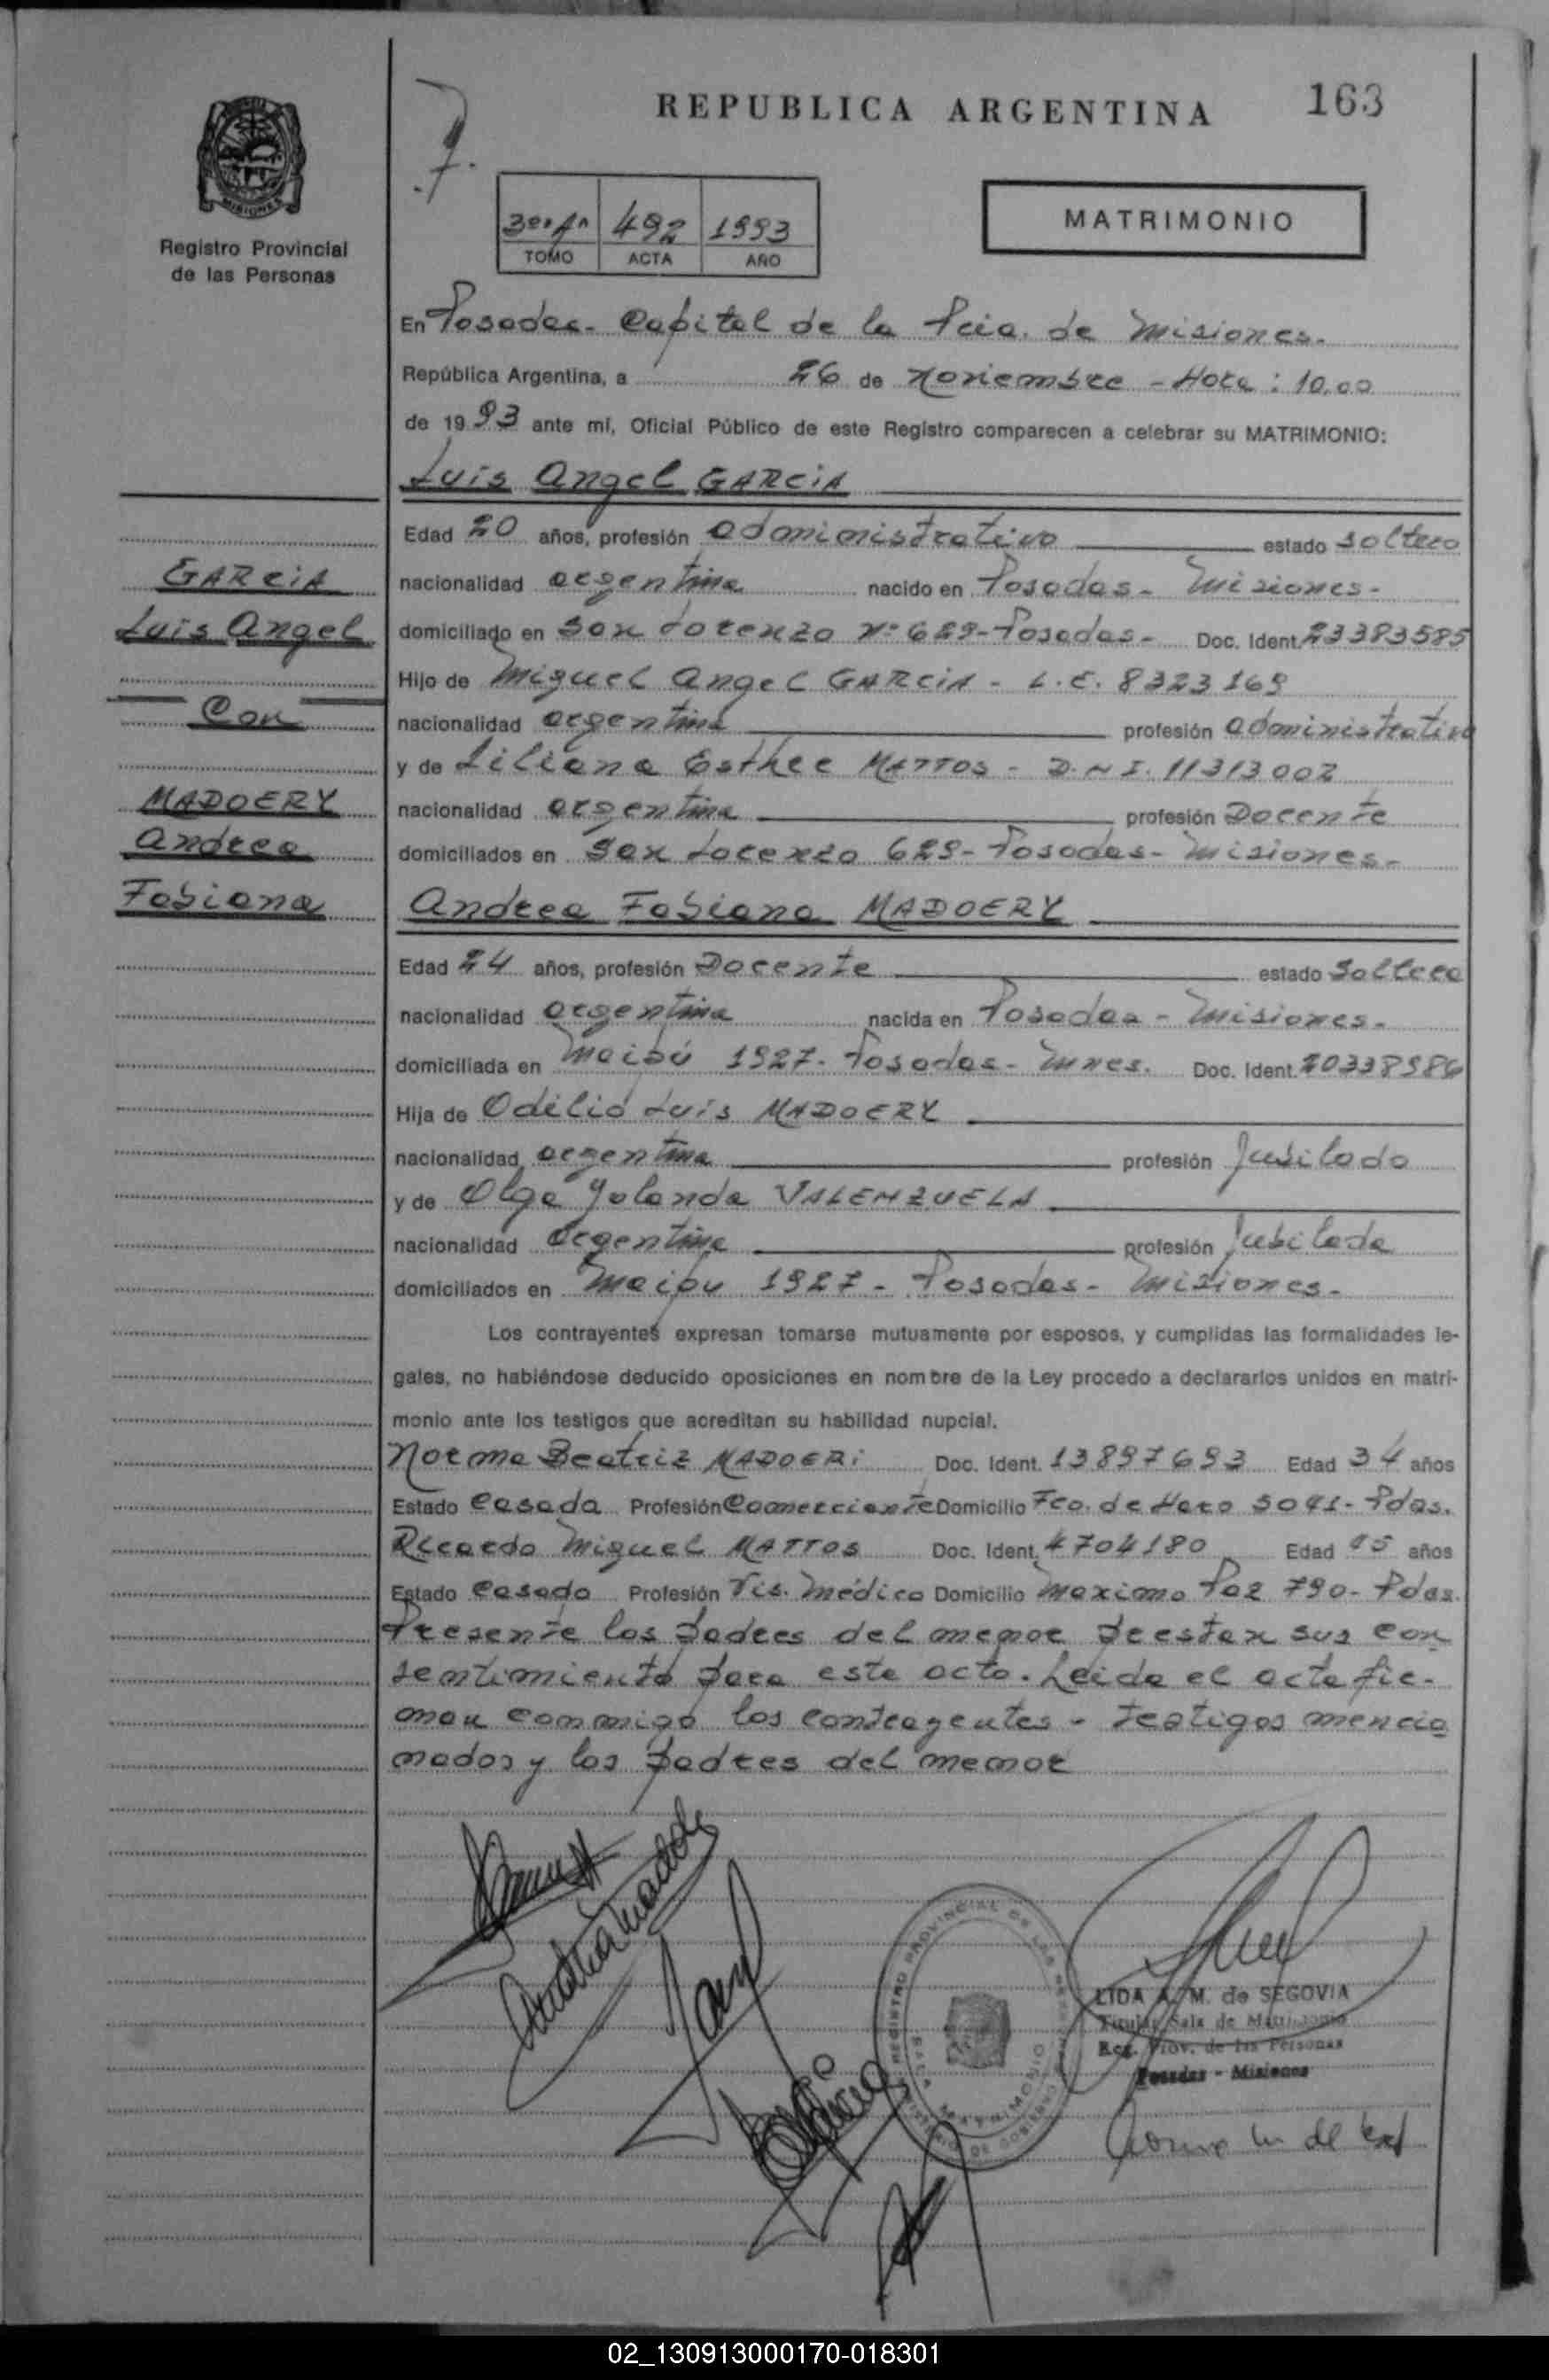 REPUBLICA ARGENTINA
163
MISIONES
Registro Provincial
de las Personas
492 1993
TOMO ACTA AÑO
MATRIMONIO
En Posadas - Capital de la Pcia. de Misiones.
República Argentina, a 26 de Noviembre - Hora: 10,00
de 1993 ante mí, Oficial Público de este Registro comparecen a celebrar su MATRIMONIO:
Luis Angel GARCIA
Edad 20 años, profesión administrativo estado soltero
GARCIA
nacionalidad argentina nacido en Posadas - Misiones -
Luis Angel
domiciliado en San Lorenzo Nº 629 - Posadas - Doc. Ident. 23383585
Hijo de Miguel Angel GARCIA - L.E. 8323169
Con
nacionalidad argentina profesión administrativo
y de Liliana Esther MATTOS - D.N.I. 11313002
MADOERY
nacionalidad argentina profesión Docente
Andrea
domiciliados en San Lorenzo 629 - Posadas - Misiones -
Fabiana
Andrea Fabiana MADOERY
Edad 24 años, profesión Docente estado soltera
nacionalidad argentina nacida en Posadas - Misiones -
domiciliada en Maipú 1927 - Posadas - Mnes. Doc. Ident. 20338986
Hija de Odilio Luis MADOERY
nacionalidad argentina profesión Jubilado
y de Olga Yolanda VALENZUELA
nacionalidad argentina profesión Jubilada
domiciliados en Maipu 1927 - Posadas - Misiones -
Los contrayentes expresan tomarse mutuamente por esposos, y cumplidas las formalidades le-
gales, no habiéndose deducido oposiciones en nombre de la Ley procedo a declararlos unidos en matri-
monio ante los testigos que acreditan su habilidad nupcial.
Norma Beatriz MADOERi Doc. Ident. 13897693 Edad 34 años
Estado Casada Profesión Comerciante Domicilio Fco. de Haro 5041 - Pdas.
Ricardo Miguel MATTOS Doc. Ident. 4704180 Edad 45 años
Estado Casado Profesión Vis. Médico Domicilio Maximo Paz 790 - Pdas.
Presente los padres del menor prestan sus con
sentimiento para este acto. Leida el acta fir-
man conmigo los contrayentes - testigos mencio
nados y los padres del menor
REGISTRO PROVINCIAL DE LAS PERSONAS
SALA MATRIMONIO
LIDA A. M. de SEGOVIA
Titular Sala de Matrimonio
Reg. Prov. de las Personas
Posadas - Misiones
02_130913000170-018301